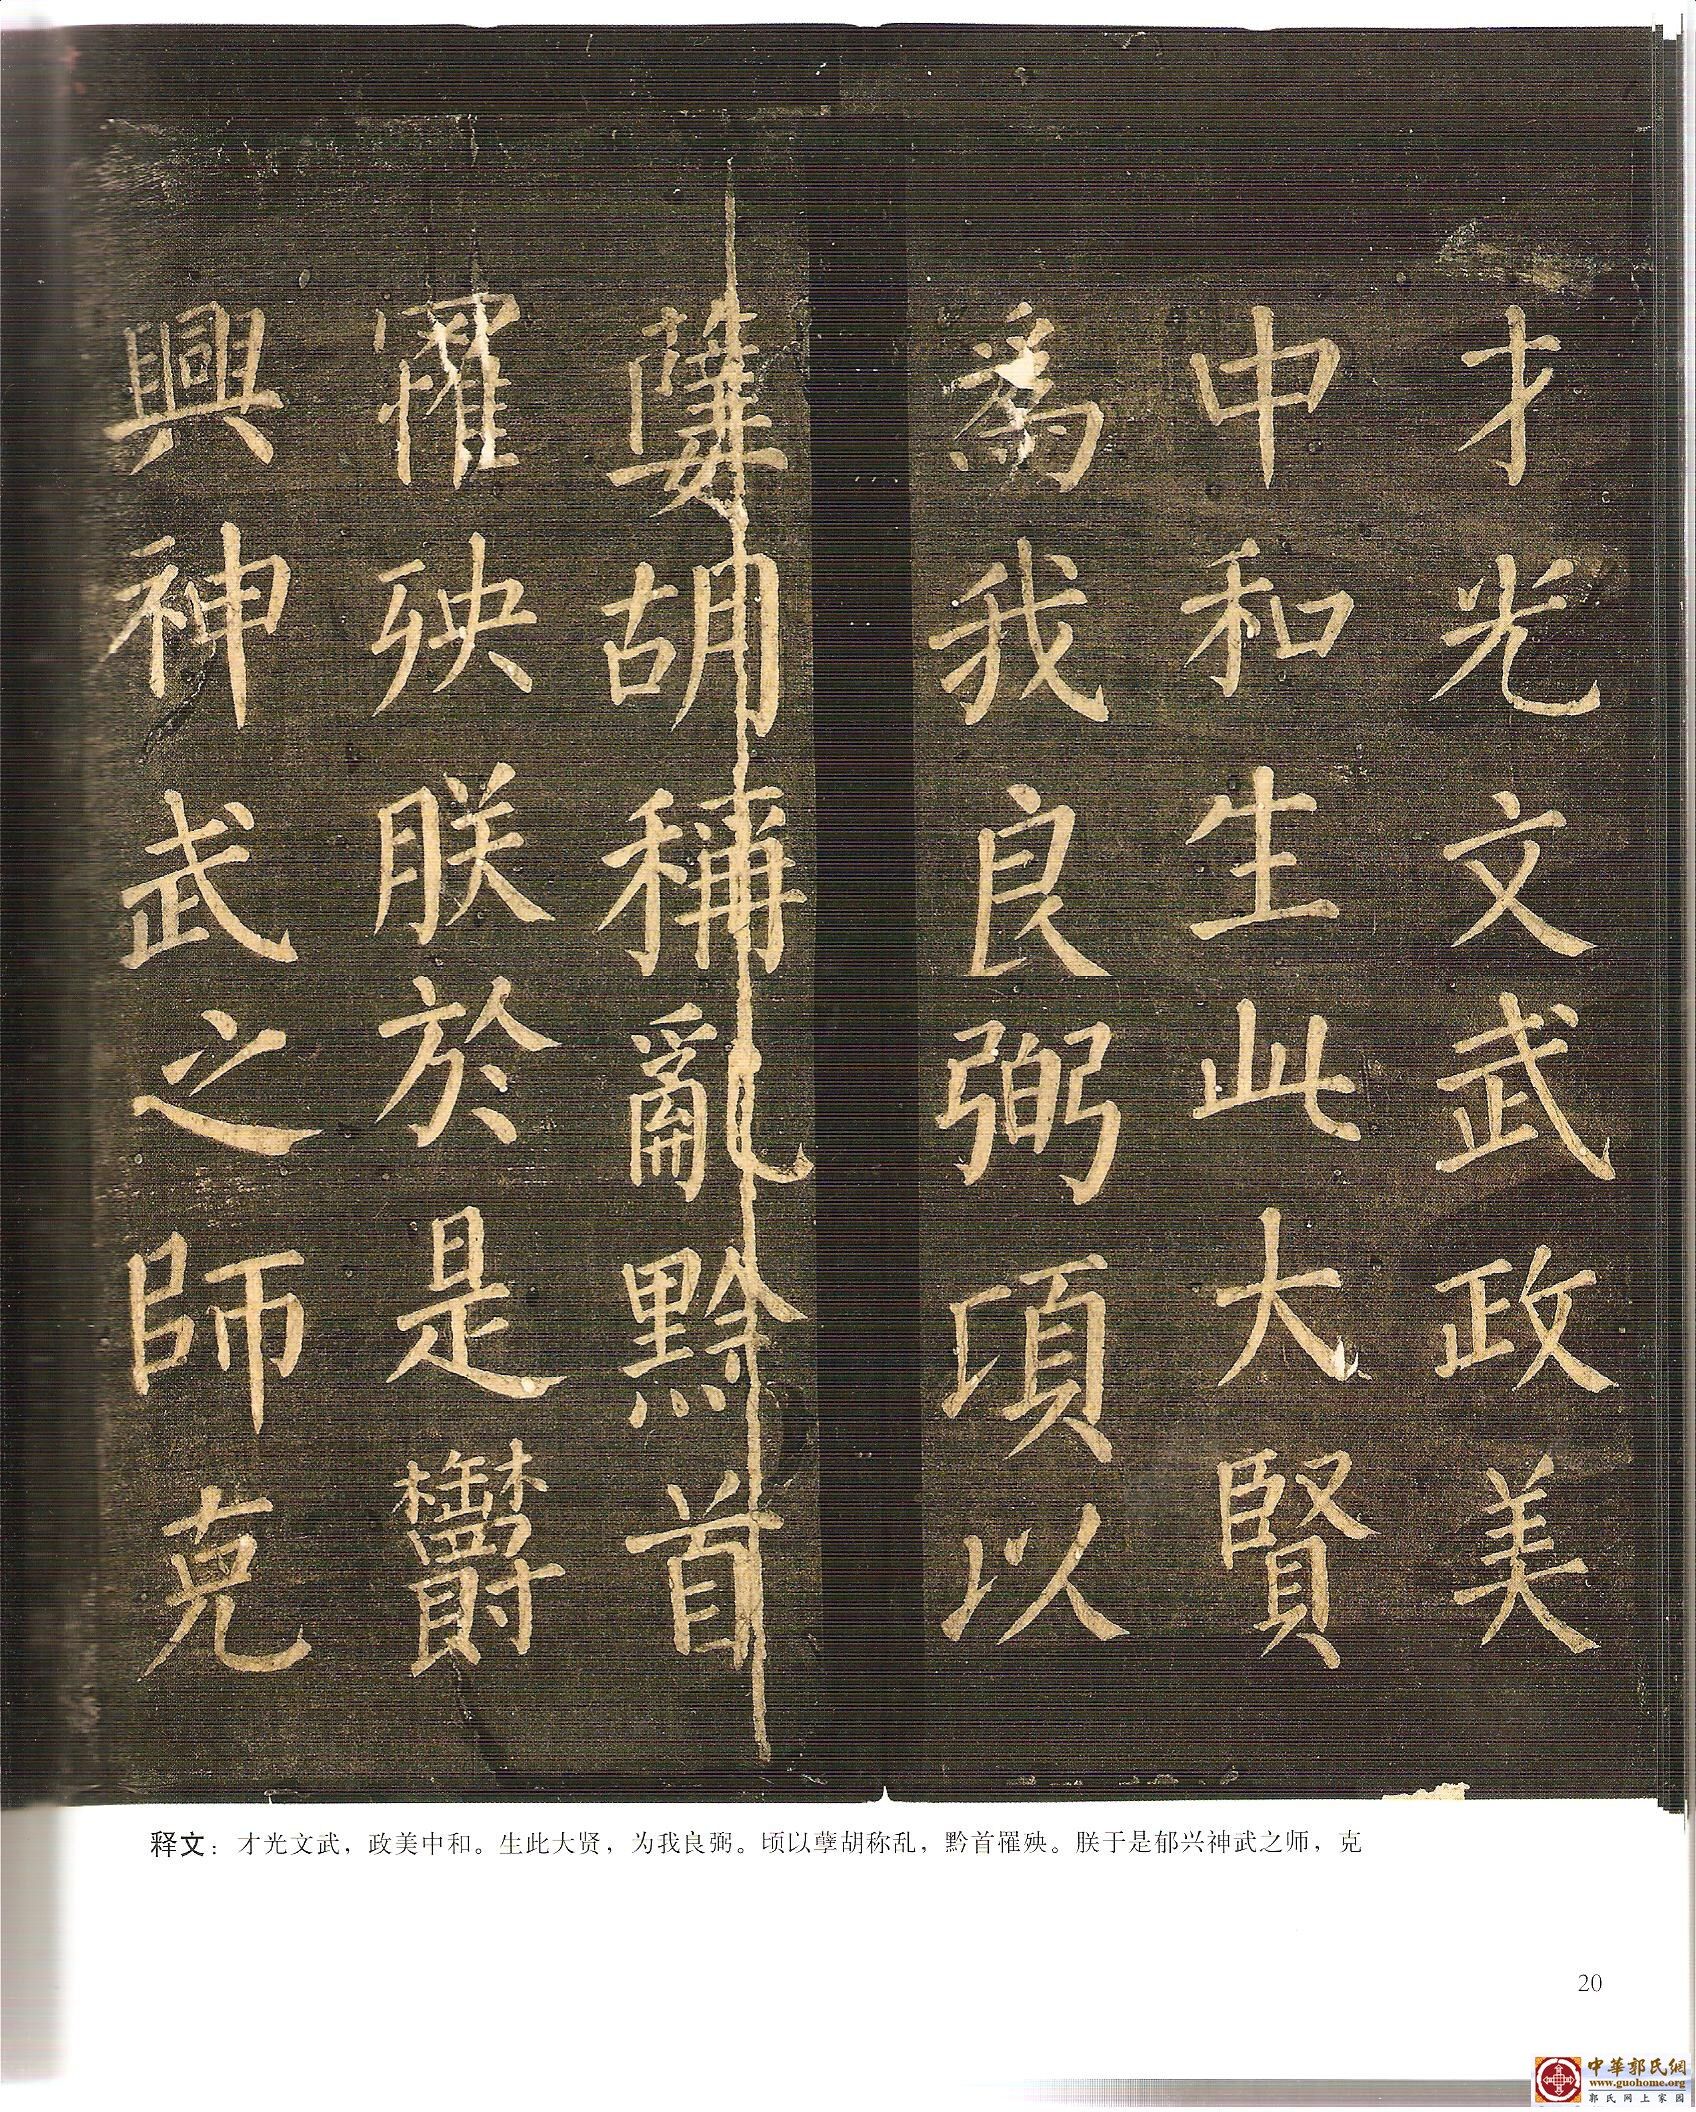 才光文武政美
中和生此大賢
為我良弼頃以
孽胡稱亂黔首
罹殃朕於是欝
興神武之師克
释文：才光文武，政美中和。生此大贤，为我良弼。顷以孽胡称乱，黔首罹殃。朕于是郁兴神武之师，克
20
中華郭氏網
www.guohome.org
郭氏网上家园